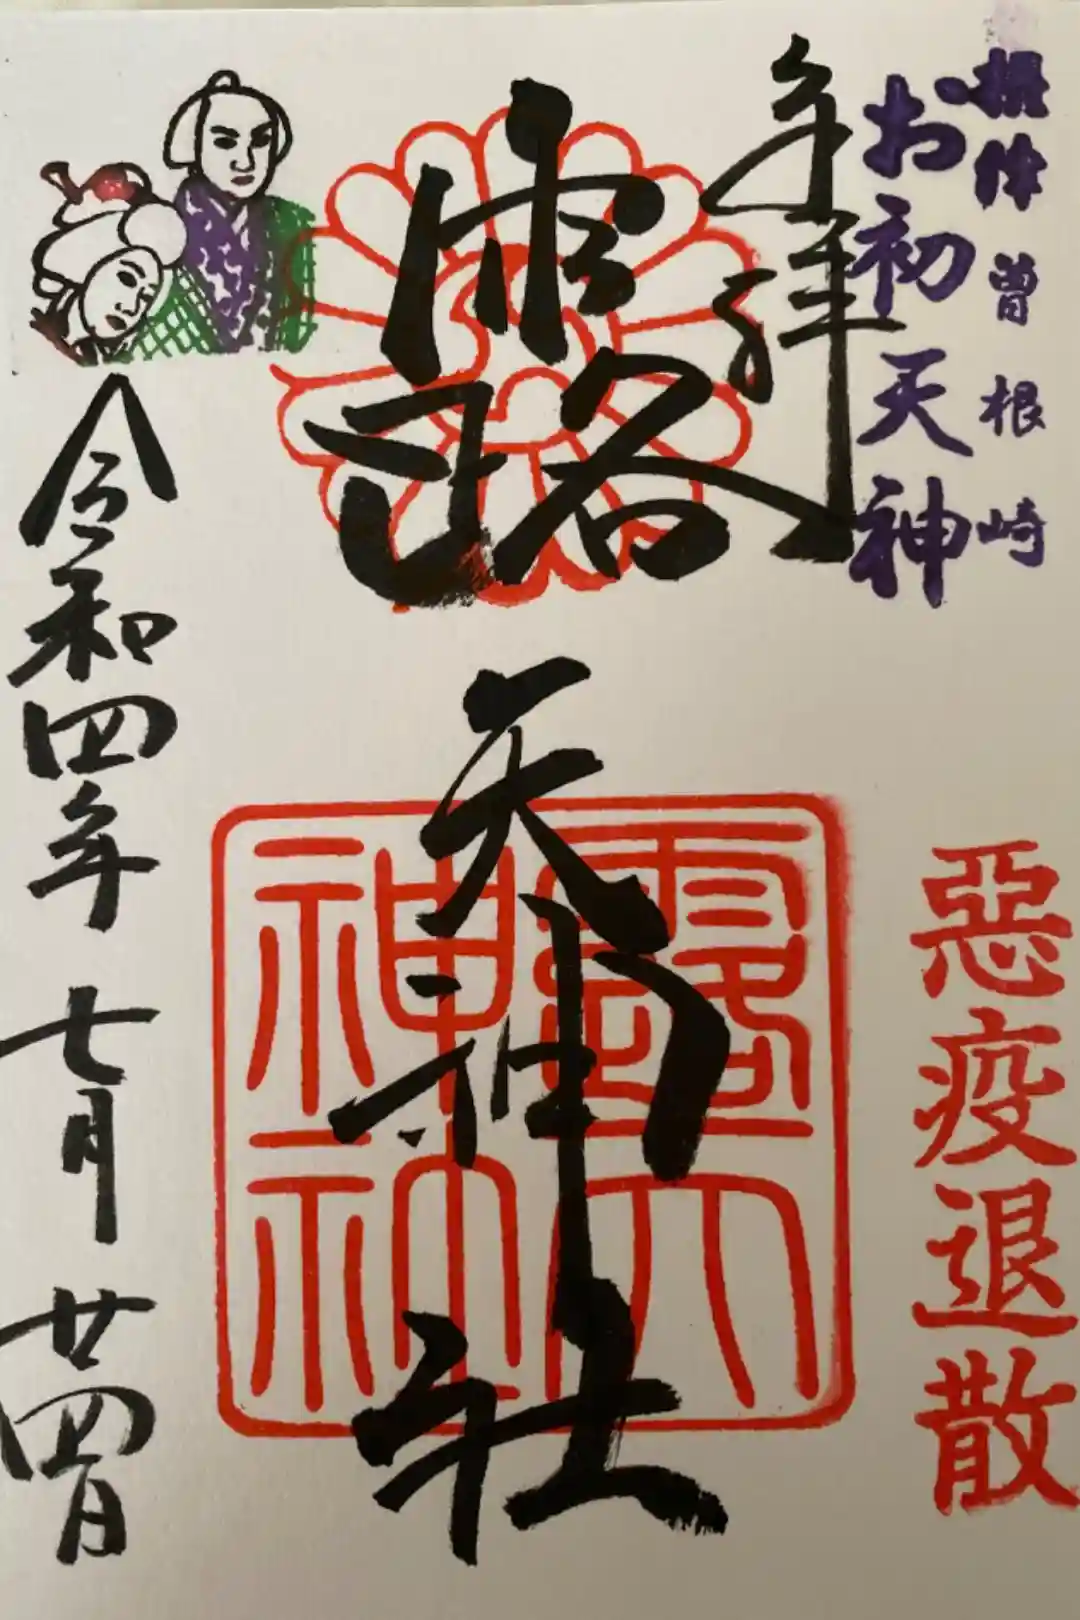 摂津 曽根崎
お初天神
奉拝
露天神社
露天神社
惡疫退散
令和四年 七月 廿四日